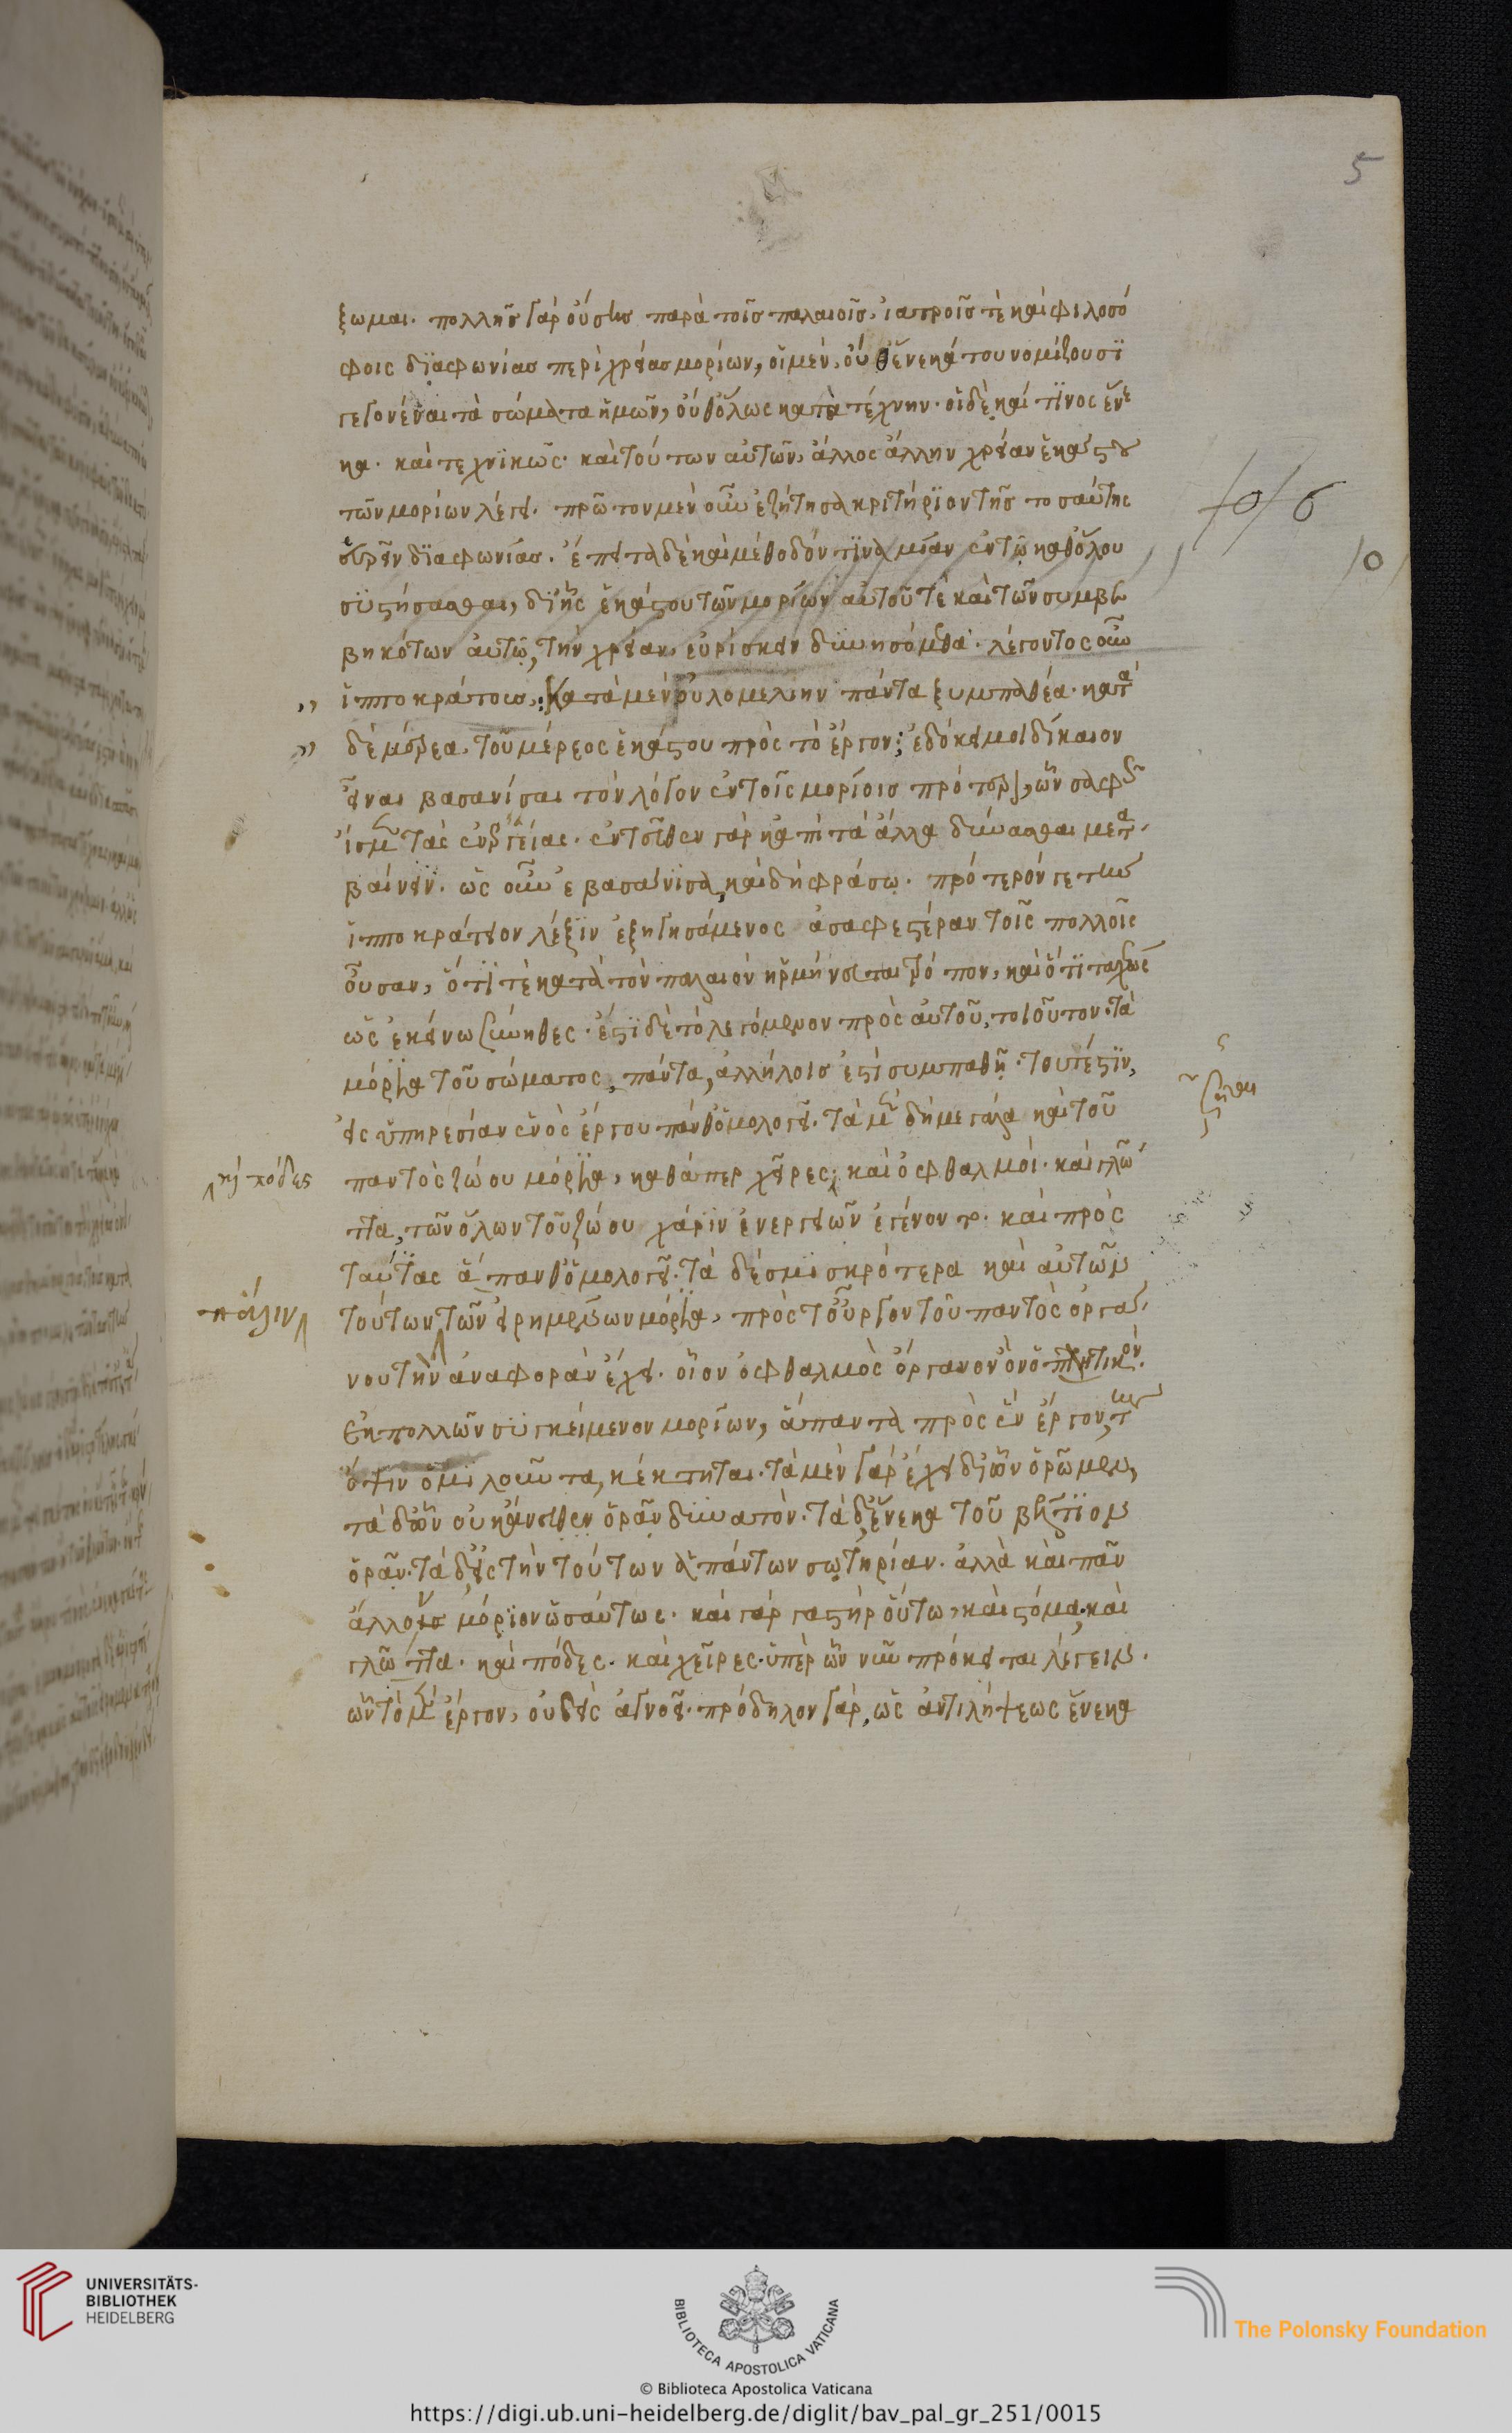 5
ξωμαι. πολλῆς γὰρ οὔσης παρὰ τοῖς παλαιοῖς, ἰατροῖς τὲ καὶ φιλοσό
φοις διαφωνίας περὶ χρείας μορίων, οἱ μὲν, οὐθἕνεκά του νομίζουσϊ
γεγονέναι τὰ σώματα ἡμῶν, οὐθόλως κατὰ τέχνην. οἱ δὲ καί τϊνος ἕνε
κα. καὶ τεχνϊκῶς. καὶ τούτων αὐτῶν, ἄλλος ἄλλην χρείαν ἑκάστου
τῶν μορίων λέγει. πρῶτον μὲν οὖν ἐζήτησα κριτήρϊον τῆς τοσαύτης
εὑρεῖν διαφωνίας. ἔπειτα δὲ καὶ μέθοδόν τϊνα μίαν ἐν τῷ καθόλου
συστήσασθαι, δι' ἧς ἑκάστου τῶν μορίων αὐτοῦ τὲ καὶ τῶν συμβε
βηκότων αὐτῷ, τὴν χρείαν, εὑρίσκειν δυνησόμεθα. λέγοντος οὖν
ἱπποκράτους, κατὰ μὲν οὐλομελίην πάντα ξυμπαθέα. κατὰ
δὲ μέρεα, τοῦ μέρεος ἑκάστου πρὸς τὸ ἔργον; ἐδόκει μοι δίκαιον
εἶναι βασανίσαι τὸν λόγον ἐν τοῖς μορίοις πρότερον, ὧν σαφῶς
ἴσμεν τὰς ἐνεργείας. ἐντεῦθεν γὰρ κἀπὶ τὰ ἄλλα δύνασθαι μετα
βαίνειν. ὡς οὖν ἐβασάνισα, καὶ δὴ φράσω. πρότερόν γε τὴν
ἱπποκράτειον λέξϊν ἐξηγησάμενος ἀσαφεστέραν τοῖς πολλοῖς
οὖσαν, ὅτϊ τὲ κατὰ τὸν παλαιὸν ἡρμήνευται τρόπον, καὶ ὅτϊ ταχέως
ὡς ἐκείνῳ σύνηθες. ἔστϊ δὲ τὸ λεγόμενον πρὸς αὐτοῦ, τοιοῦτον. τὰ
μόρϊα τοῦ σώματος, πάντα, ἀλλήλοις ἐστὶ συμπαθῆ. τουτέστϊν,
εἰς ὑπηρεσίαν ἑνὸς ἔργου πάνθ' ὁμολογεῖ. τὰ μὲν δὴ μεγάλα καὶ τοῦ
κ̀ πόδες
παντὸς ζώου μόρϊα, καθάπερ χεῖρες, καὶ ὀφθαλμοί. καὶ γλῶτ
τα, τῶν ὅλων τοῦ ζώου χάρϊν ἐνεργειῶν ἐγένοντο. καὶ πρὸς
ταύτας ἅπανθ' ὁμολογεῖ. τὰ δὲ σμικρότερα καὶ αὐτῶν
πάλιν
τούτων τῶν εἰρημένων μόρϊα, πρὸς τοὖργον τοῦ παντὸς ὀργά
νου τὴν ἀναφορὰν ἔχει. οἷον ὀφθαλμὸς ὄργανον ὂν ὀπτικὸν
ἐκ πολλῶν συγκείμενον μορίων, ἅπαντα πρὸς ἓν ἔργον, τὴν
ὄψιν ὁμιλοῦντα, κέκτηται. τὰ μὲν γὰρ ἔχει δι' ὧν ὁρῶμεν,
τὰ δ' ὧν οὐκ ἄνευθεν ὁρᾶν δυνατόν. τὰ δ' ἕνεκα τοῦ βέλτϊον
ὁρᾶν. τὰ δ' εἰς τὴν τούτων ἁπάντων σωτηρίαν. ἀλλὰ καὶ πᾶν
ἄλλο μόρϊον ὡσαύτως. καὶ γὰρ γαστὴρ οὕτω, καὶ στόμα, καὶ
γλῶττα. καὶ πόδες. καὶ χεῖρες. ὑπὲρ ὧν νῦν πρόκειται λέγειν.
ὧν τὸ μὲν ἔργον, οὐδεὶς ἀγνοεῖ. πρόδηλον γὰρ, ὡς ἀντιλήψεως ἕνεκα
UNIVERSITÄTS-
BIBLIOTHEK
HEIDELBERG
BIBLIOTECA APOSTOLICA VATICANA
The Polonsky Foundation
© Biblioteca Apostolica Vaticana
https://digi.ub.uni-heidelberg.de/diglit/bav_pal_gr_251/0015